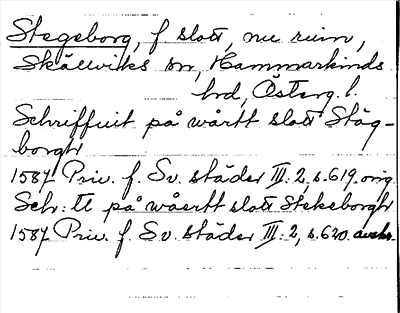 Stegeborg, f slott, nu ruin,
Skällviks sn, Hammarkinds
hrd, Österg. l.
Schriffuit på wårtt slott Stäg-
borgh
1587 Priv. f. Sv. städer III:2, s. 619. orig.
Schr: tt på wåertt slott Stekeborgh
1587 Priv. f. Sv. städer III:2, s. 620. avskr.